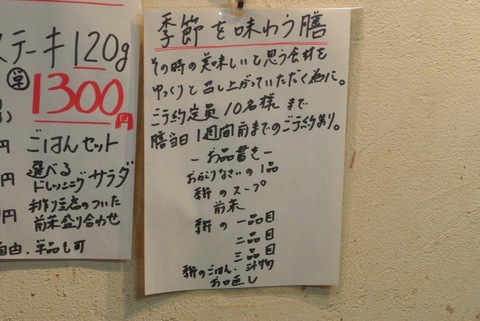 ステーキ120g
1300円
ごはんセット
選べる
ドレッシングサラダ
手作り豆富のついた
前菜盛り合わせ
自由．単品も可
季節を味わう膳
その時の美味しいと思う食材を
ゆっくりと召し上がっていただく為に。
ご予約定員10名様まで
膳当日1週間前までのご予約あり。
－お品書き－
おかえりなさいの1品
季節のスープ
前菜
季節の一品目
二品目
三品目
季節のごはん．汁物
お口直し